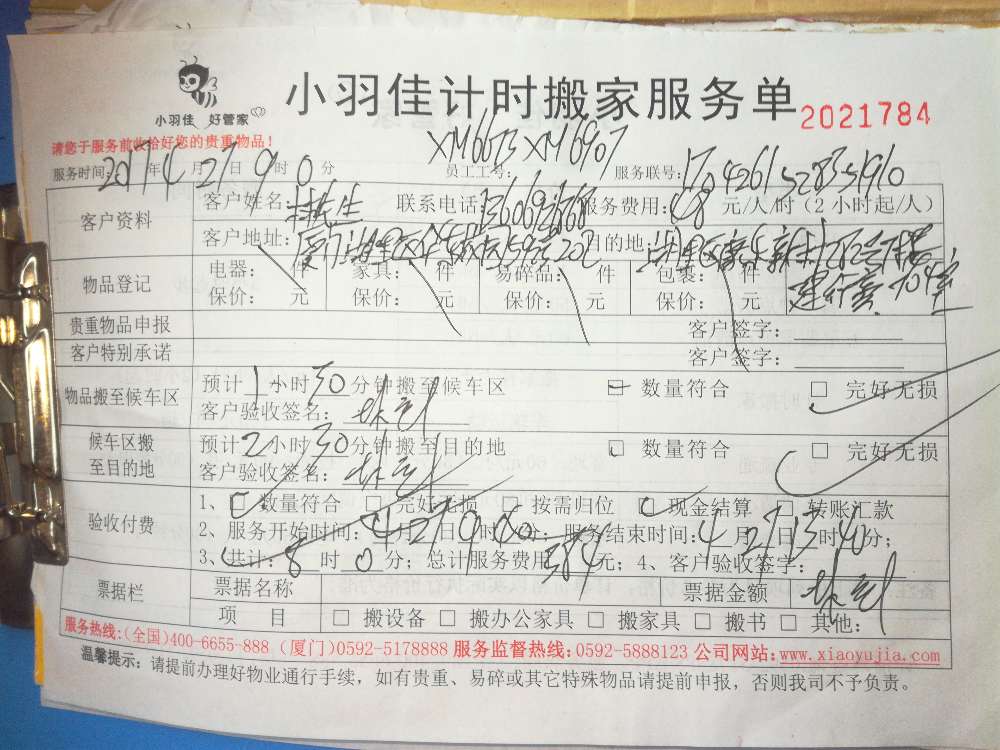 小羽佳 好管家
小羽佳计时搬家服务单 2021784
请您于服务前收拾好您的贵重物品!
XM6673 XM6907
服务时间: 2017年4月27日9时0分 员工工号: 服务联号:
客户资料 客户姓名: 林先生 联系电话: 服务费用: 48元/人/时(2小时起/人)
客户地址: 目的地:
物品登记 电器: 件 家具: 件 易碎品: 件 包裹: 件
保价: 元 保价: 元 保价: 元 保价: 元
贵重物品申报 客户签字:
客户特别承诺 客户签字:
物品搬至候车区 预计1小时30分钟搬至候车区 □ 数量符合 □ 完好无损
客户验收签名:
候车区搬至目的地 预计2小时30分钟搬至目的地 □ 数量符合 □ 完好无损
客户验收签名:
验收付费 1、□ 数量符合 □ 完好无损 □ 按需归位 □ 现金结算 □ 转账汇款
2、服务开始时间:4月27日9时00分; 服务结束时间:4月27日13时40分;
3、共计:8时0分; 总计服务费用384元; 4、客户验收签字:
票据栏 票据名称 票据金额
项 目 □ 搬设备 □ 搬办公家具 □ 搬家具 □ 搬书 □ 其他:
服务热线:(全国)400-6655-888 (厦门)0592-5178888 服务监督热线:0592-5888123 公司网站:www.xiaoyujia.com
温馨提示: 请提前办理好物业通行手续,如有贵重、易碎或其它特殊物品请提前申报,否则我司不予负责。